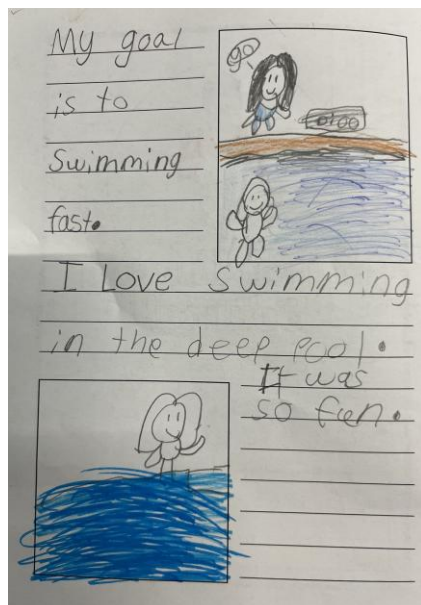 My goal
is to
Swimming
fast.
go
0:00
I Love swimming
in the deep pool.
It was
so fun.